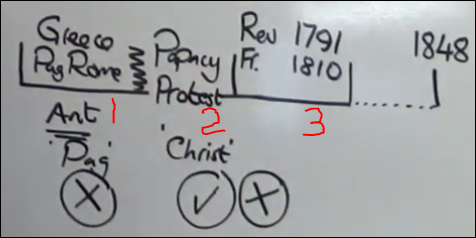 Greece
Pag Rome
Papacy
Protest
Rev 1791
Fr. 1810
1848
Ant 1
'Pag'
2
'Christ'
3